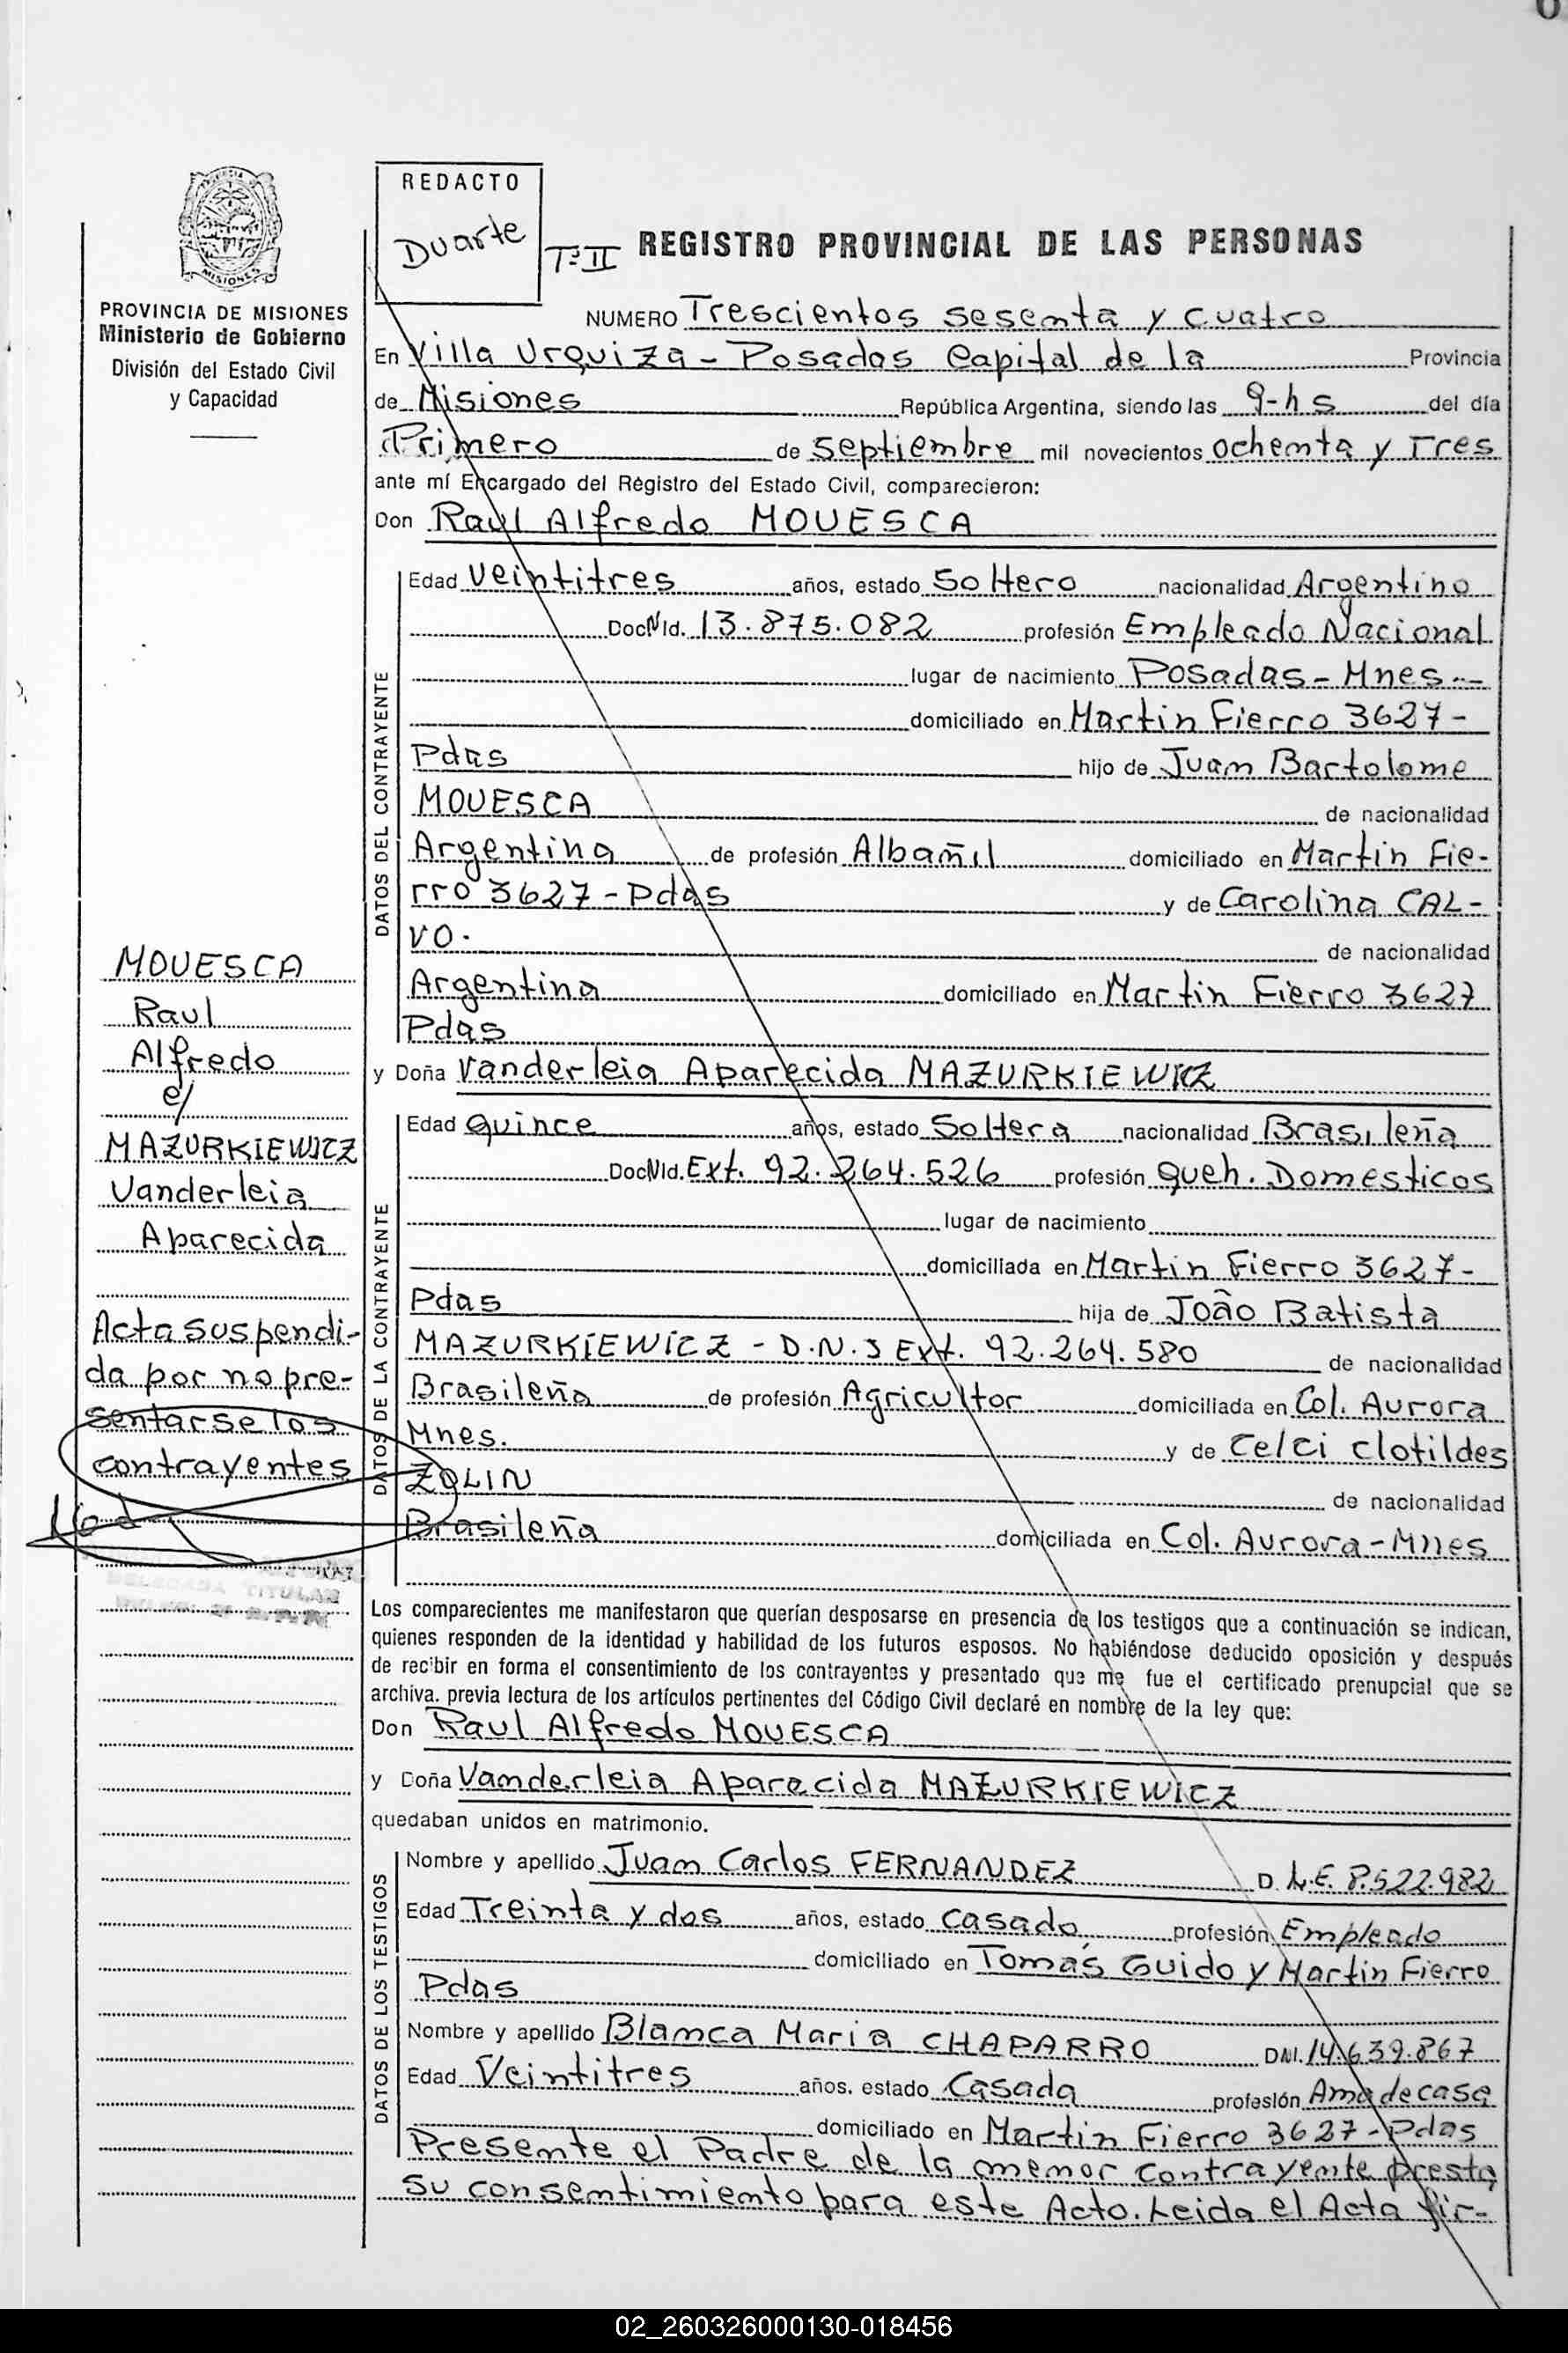 REDACTO
Duarte
Tº II
REGISTRO PROVINCIAL DE LAS PERSONAS
MISIONES
PROVINCIA DE MISIONES
Ministerio de Gobierno
División del Estado Civil
y Capacidad
NUMERO Trescientos sesenta y cuatro
En Villa Urquiza - Posadas Capital de la Provincia
de Misiones República Argentina, siendo las 9-hs del día
Primero de septiembre mil novecientos ochenta y Tres
ante mí Encargado del Registro del Estado Civil, comparecieron:
Don Raul Alfredo MOVESCA
DATOS DEL CONTRAYENTE
Edad Veintitres años, estado Soltero nacionalidad Argentino
Doc. N Id. 13.875.082 profesión Empleado Nacional
lugar de nacimiento Posadas - Mnes --
domiciliado en Martin Fierro 3627-
Pdas hijo de Juan Bartolome
MOVESCA de nacionalidad
Argentina de profesión Albañil domiciliado en Martin Fie-
rro 3627 - Pdas y de Carolina CAL-
VO. de nacionalidad
Argentina domiciliado en Martin Fierro 3627
Pdas
y Doña Vanderleia Aparecida MAZURKIEWICZ
DATOS DE LA CONTRAYENTE
Edad quince años, estado Soltera nacionalidad Brasileña
Doc. N Id. Ext. 92.264.526 profesión Queh. Domesticos
lugar de nacimiento
domiciliada en Martin Fierro 3627-
Pdas hija de João Batista
MAZURKIEWICZ - D.N.J Ext. 92.264.580 de nacionalidad
Brasileña de profesión Agricultor domiciliada en Col. Aurora
Mnes. y de Celci clotildes
ZOLIN de nacionalidad
Brasileña domiciliada en Col. Aurora - Mnes
MOVESCA
Raul
Alfredo
e/
MAZURKIEWICZ
Vanderleia
Aparecida
Acta suspendi-
da por no pre-
sentarse los
contrayentes
DELEGADA TITULAR
Los comparecientes me manifestaron que querían desposarse en presencia de los testigos que a continuación se indican,
quienes responden de la identidad y habilidad de los futuros esposos. No habiéndose deducido oposición y después
de recibir en forma el consentimiento de los contrayentes y presentado que me fue el certificado prenupcial que se
archiva. previa lectura de los artículos pertinentes del Código Civil declaré en nombre de la ley que:
Don Raul Alfredo MOVESCA
y Doña Vanderleia Aparecida MAZURKIEWICZ
quedaban unidos en matrimonio.
DATOS DE LOS TESTIGOS
Nombre y apellido Juan Carlos FERNANDEZ D. L.E. 8.522.982
Edad Treinta y dos años, estado Casado profesión Empleado
domiciliado en Tomás Guido y Martin Fierro
Pdas
Nombre y apellido Blanca Maria CHAPARRO DNI. 14.639.867
Edad Veintitres años. estado Casada profesión Ama de casa
domiciliado en Martin Fierro 3627 - Pdas
Presente el Padre de la menor contrayente presta
su consentimiento para este Acto. Leida el Acta fir-
02_260326000130-018456